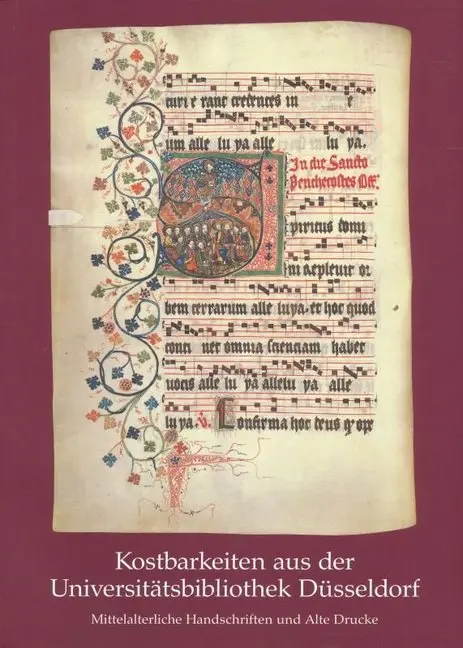 turi e rant credentes in e
um alle lu ya alle lu ya.
In die Sancto
Penthecostes Off.
Spiritus domi
ni Repleuit or
bem terrarum alle luya. et hoc quod
conti net omnia scienciam habet
uocis alle lu ya allelu ya alle
lu ya. V. Confirma hoc deus q ope
Kostbarkeiten aus der
Universitätsbibliothek Düsseldorf
Mittelalterliche Handschriften und Alte Drucke